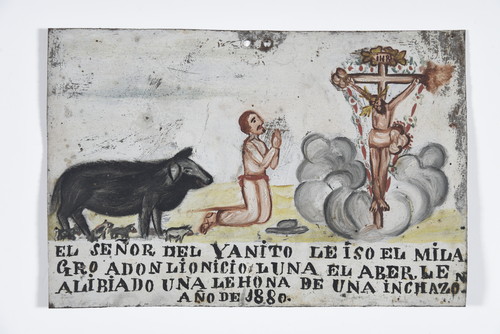 INRI
EL SEÑOR DEL VANITO LE ISO EL MILA
GRO ADON LIONICIO LUNA EL ABERLEN
ALIBIADO UNA LEHONA DE UNA INCHAZO.
AÑO DE 1880.